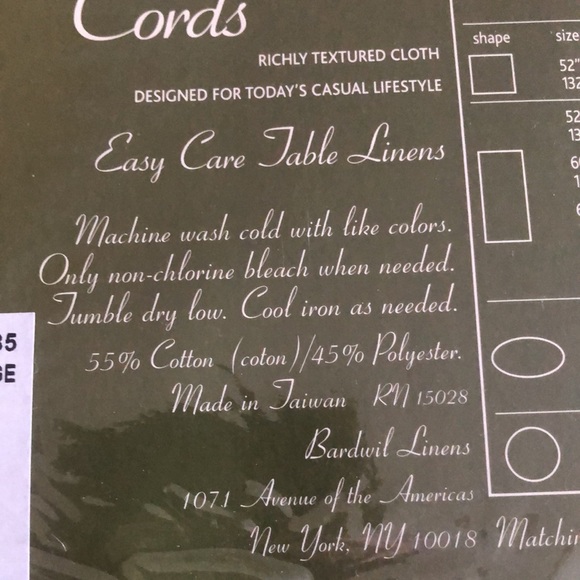 Cords
RICHLY TEXTURED CLOTH
DESIGNED FOR TODAY'S CASUAL LIFESTYLE
Easy Care Table Linens
Machine wash cold with like colors.
Only non-chlorine bleach when needed.
Tumble dry low. Cool iron as needed.
55% Cotton (coton)/45% Polyester.
Made in Taiwan RN 15028
Bardwil Linens
1071 Avenue of the Americas
New York, NY 10018
shape size
52"
132
52